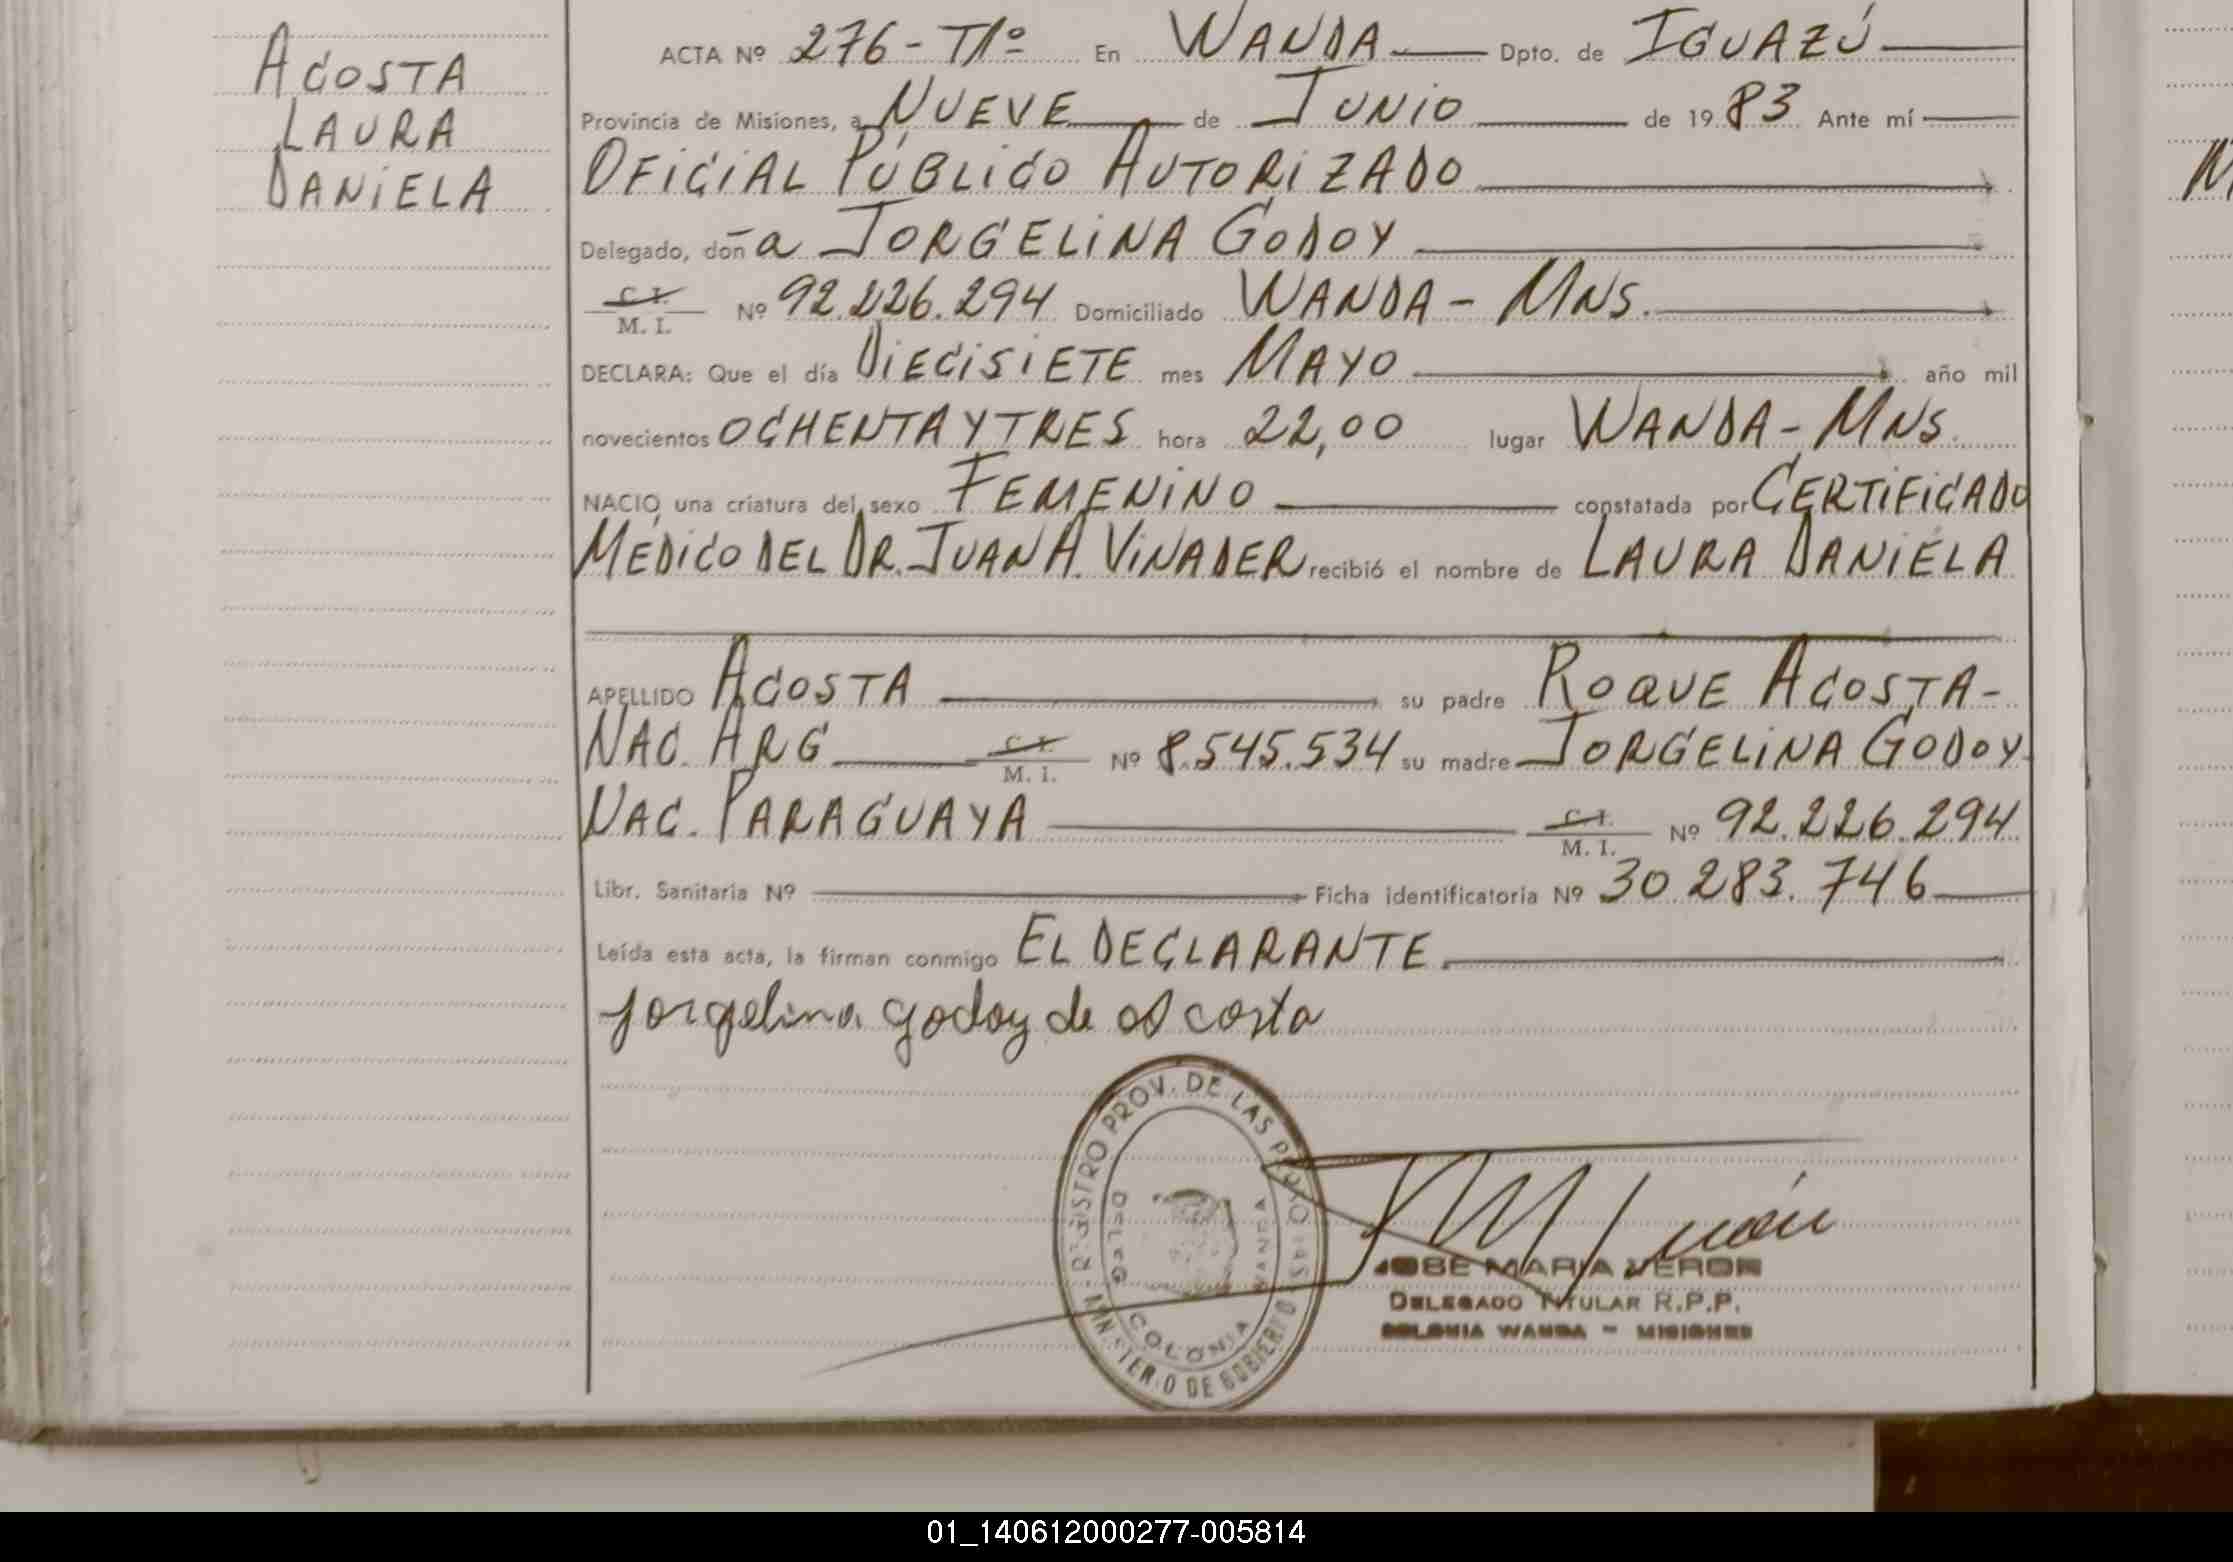 ACOSTA
LAURA
DANIELA
ACTA Nº 276 - Tº1º En WANDA Dpto. de IGUAZÚ
Provincia de Misiones, a NUEVE de JUNIO de 1983 Ante mí
OFICIAL PÚBLICO AUTORIZADO
Delegado, doña JORGELINA GODOY
C. I. / M. I. Nº 92.226.294 Domiciliado WANDA - MNS.
DECLARA: Que el día DIECISIETE mes MAYO año mil
novecientos OCHENTA Y TRES hora 22,00 lugar WANDA - MNS.
NACIO una criatura del sexo FEMENINO constatada por CERTIFICADO
MEDICO DEL DR. JUAN A. VINADER recibió el nombre de LAURA DANIELA
APELLIDO ACOSTA su padre ROQUE ACOSTA -
NAC. ARG C. I. / M. I. Nº 8.545.534 su madre JORGELINA GODOY
NAC. PARAGUAYA C. I. / M. I. Nº 92.226.294
Libr. Sanitaria Nº Ficha identificatoria Nº 30.283.746
Leída esta acta, la firman conmigo EL DECLARANTE.
Jorgelina godoy de Acosta
REGISTRO PROV. DE LAS PERSONAS
MINISTERIO DE GOBIERNO
DELEG. COLONIA WANDA
JOSE MARIA VERON
DELEGADO TITULAR R.P.P.
COLONIA WANDA - MISIONES
01_140612000277-005814